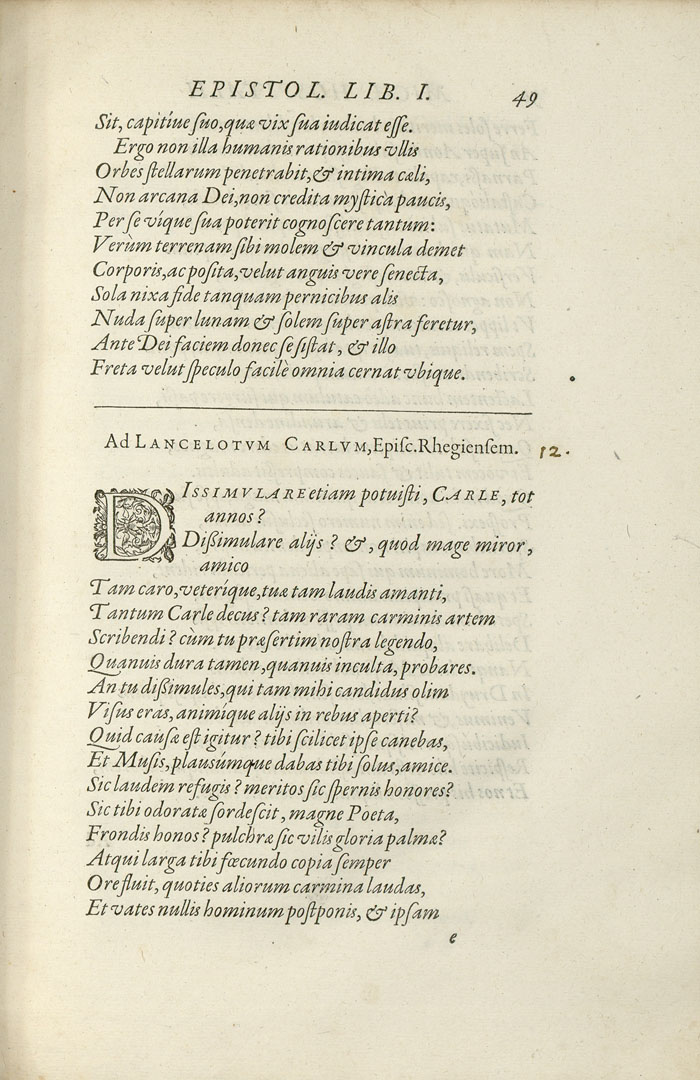 EPISTOL. LIB. I. 49
Sit, capitíue suo, quæ vix sua iudicat esse.
Ergo non illa humanis rationibus vllis
Orbes stellarum penetrabit, & intima cæli,
Non arcana Dei, non credita mystica paucis,
Per se víque sua poterit cognoscere tantum:
Verùm terrenam sibi molem & vincula demet
Corporis, ac posita, velut anguis vere senecta,
Sola nixa fide tanquam pernicibus alis
Nuda super lunam & solem super astra feretur,
Ante Dei faciem donec se sistat, & illo
Freta velut speculo facilè omnia cernat vbique.
Ad LANCELOTVM CARLVM, Episc. Rhegiensem. 12.
DISSIMVLARE etiam potuisti, CARLE, tot
annos?
Dißimulare alijs? &, quod mage miror,
amico
Tam caro, veteríque, tuæ tam laudis amanti,
Tantum Carle decus? tam raram carminis artem
Scribendi? cùm tu præsertim nostra legendo,
Quanuis dura tamen, quanuis inculta, probares.
An tu dißimules, qui tam mihi candidus olim
Visus eras, animíque alijs in rebus aperti?
Quid causæ est igitur? tibi scilicet ipse canebas,
Et Musis, plausúmque dabas tibi solus, amice.
Sic laudem refugis? meritos sic spernis honores?
Sic tibi odoratæ sordescit, magne Poeta,
Frondis honos? pulchræ sic vilis gloria palmæ?
Atqui larga tibi fœcundo copia semper
Ore fluit, quoties aliorum carmina laudas,
Et vates nullis hominum postponis, & ipsam
e